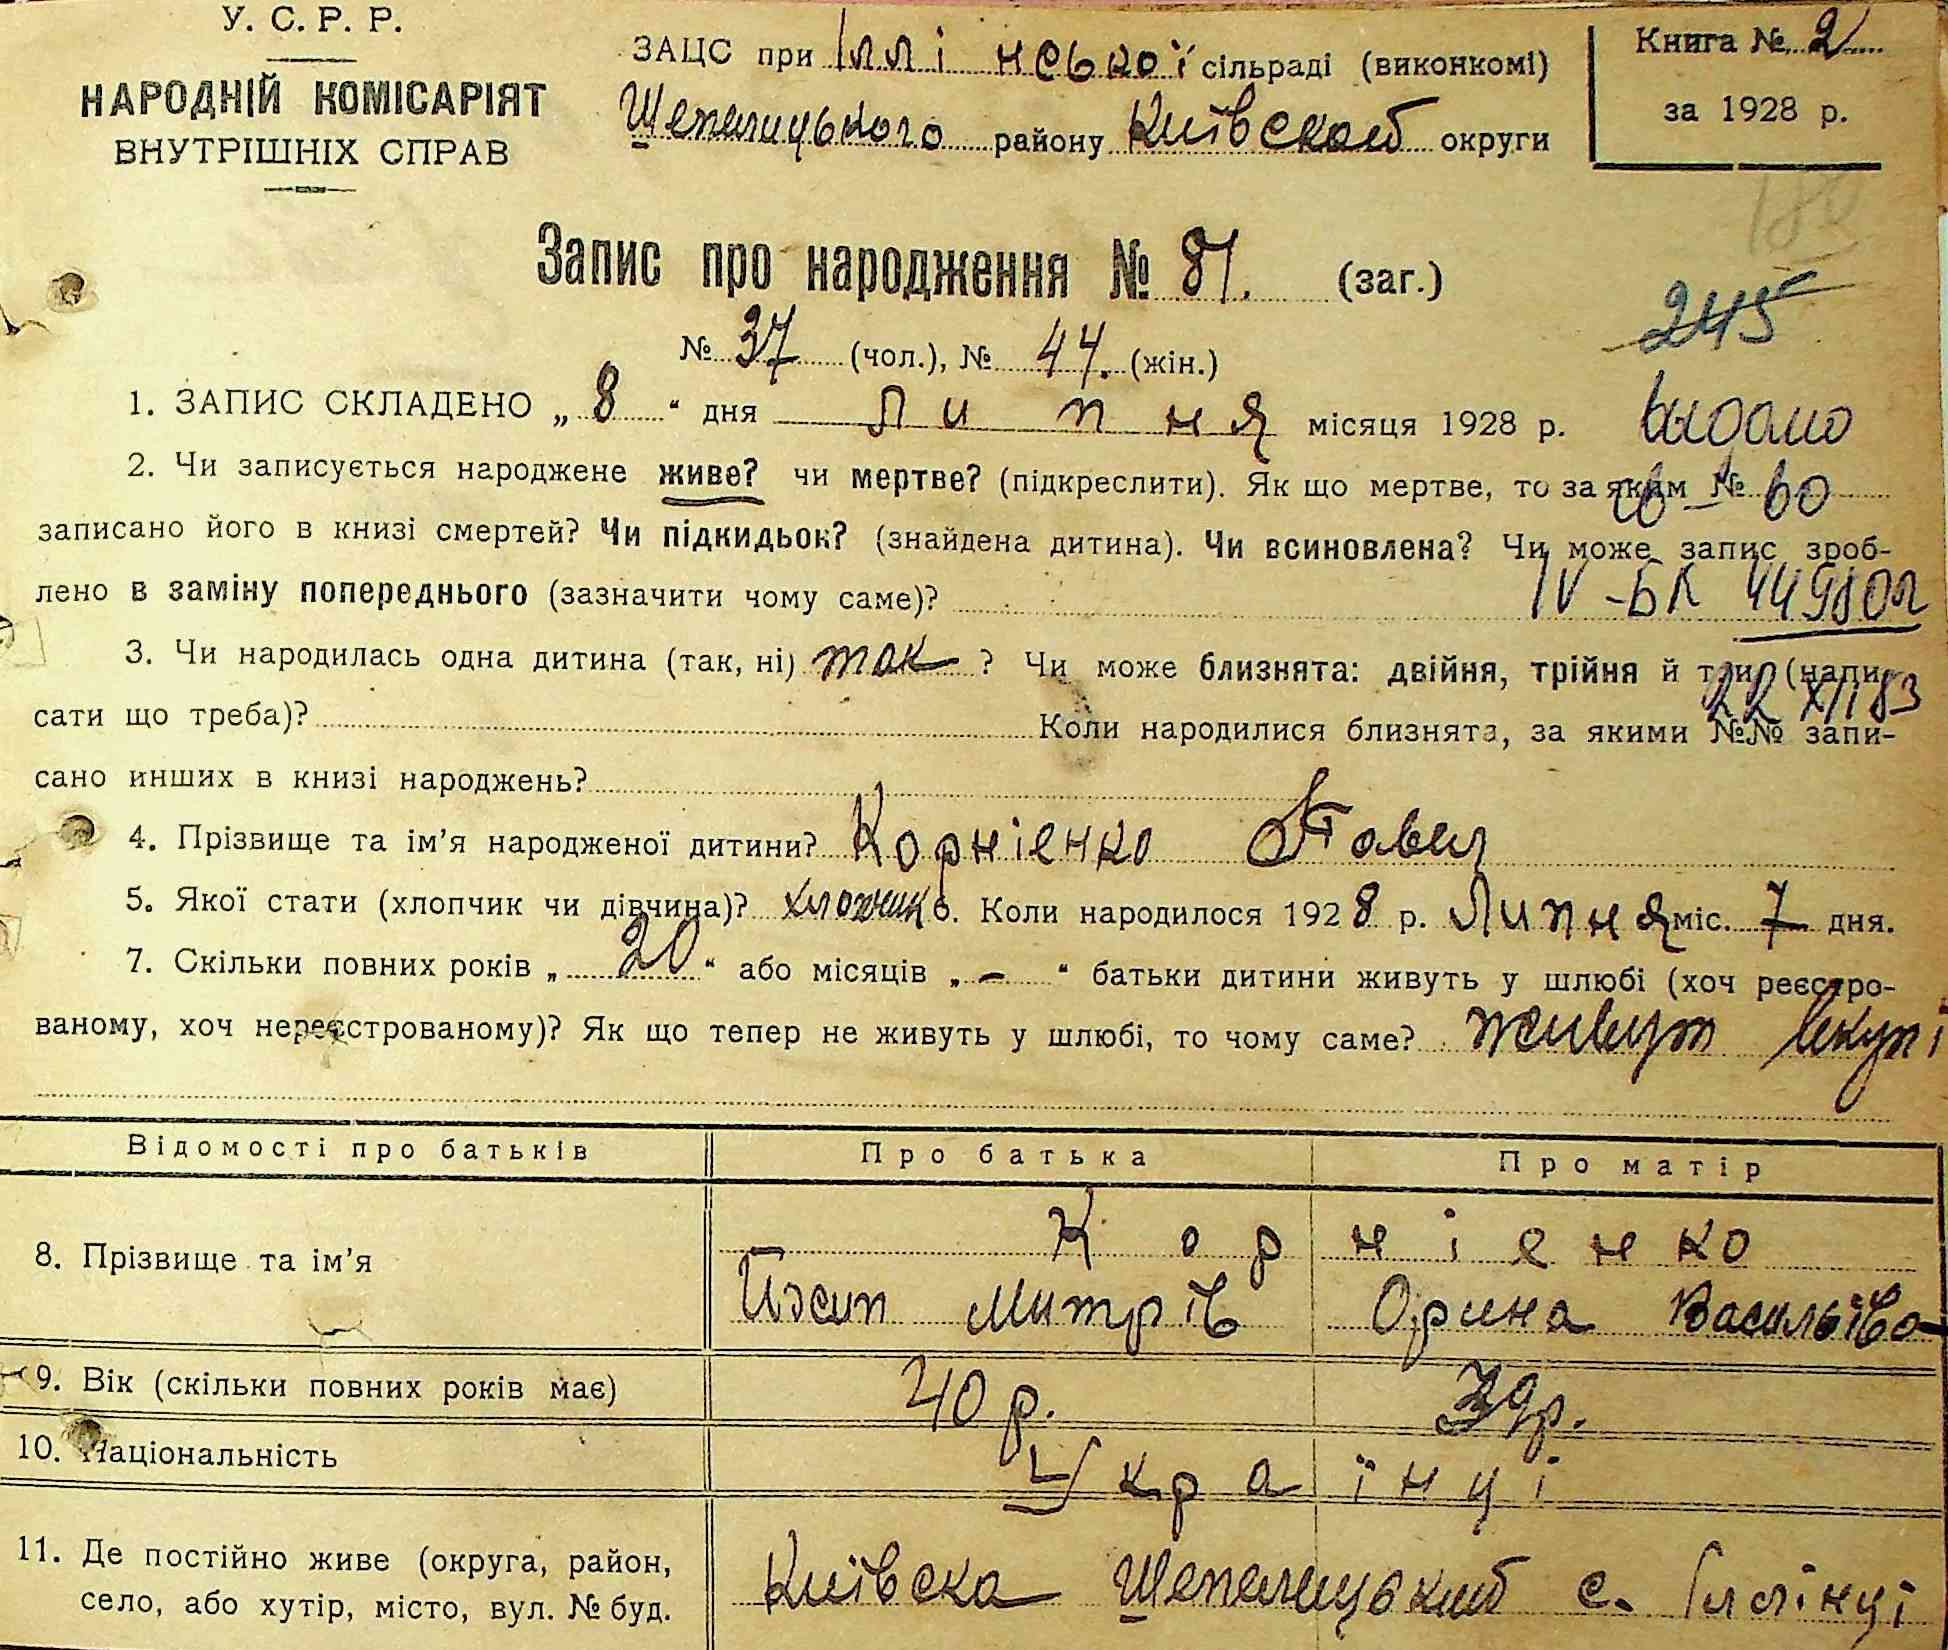 У. С. Р. Р.
НАРОДНІЙ КОМІСАРІЯТ
ВНУТРІШНІХ СПРАВ
ЗАЦС при Іллінської сільраді (виконкомі)
Шепелицького району Київской округи
Книга № 2
за 1928 р.
Запис про народження № 81. (заг.)
№ 37 (чол.), № 44. (жін.)
245
видано
1. ЗАПИС СКЛАДЕНО „ 8 “ дня Липня місяця 1928 р.
2. Чи записується народжене живе? чи мертве? (підкреслити). Як що мертве, то за яким №
записано його в книзі смертей? Чи підкидьок? (знайдена дитина). Чи всиновлена? Чи може запис зроб-
лено в заміну попереднього (зазначити чому саме)?
IV-БК
22 XII 83
3. Чи народилась одна дитина (так, ні) так ? Чи може близнята: двійня, трійня й три (напи-
сати що треба)? Коли народилися близнята, за якими №№ запи-
сано инших в книзі народжень?
4. Прізвище та ім’я народженої дитини? Корніенко Павел
5. Якої стати (хлопчик чи дівчина)? хлопчик 6. Коли народилося 1928 р. Липня міс. 7 дня.
7. Скільки повних років „ 20 “ або місяців „ – “ батьки дитини живуть у шлюбі (хоч реєстро-
ваному, хоч нереєстрованому)? Як що тепер не живуть у шлюбі, то чому саме? живут вкупі
Відомості про батьків Про батька Про матір
8. Прізвище та ім’я Корніенко
Йосип Митрів Орина Васильіва
9. Вік (скільки повних років має) 40 р. 39 р.
10. Національність Українці
11. Де постійно живе (округа, район,
село, або хутір, місто, вул. № буд. Київска Шепелицький с. Іллінці